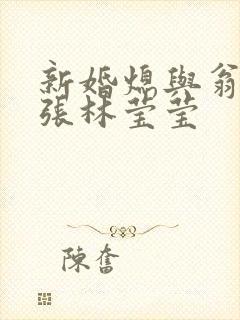 新婚熄與翁
張林莹莹
陳奮